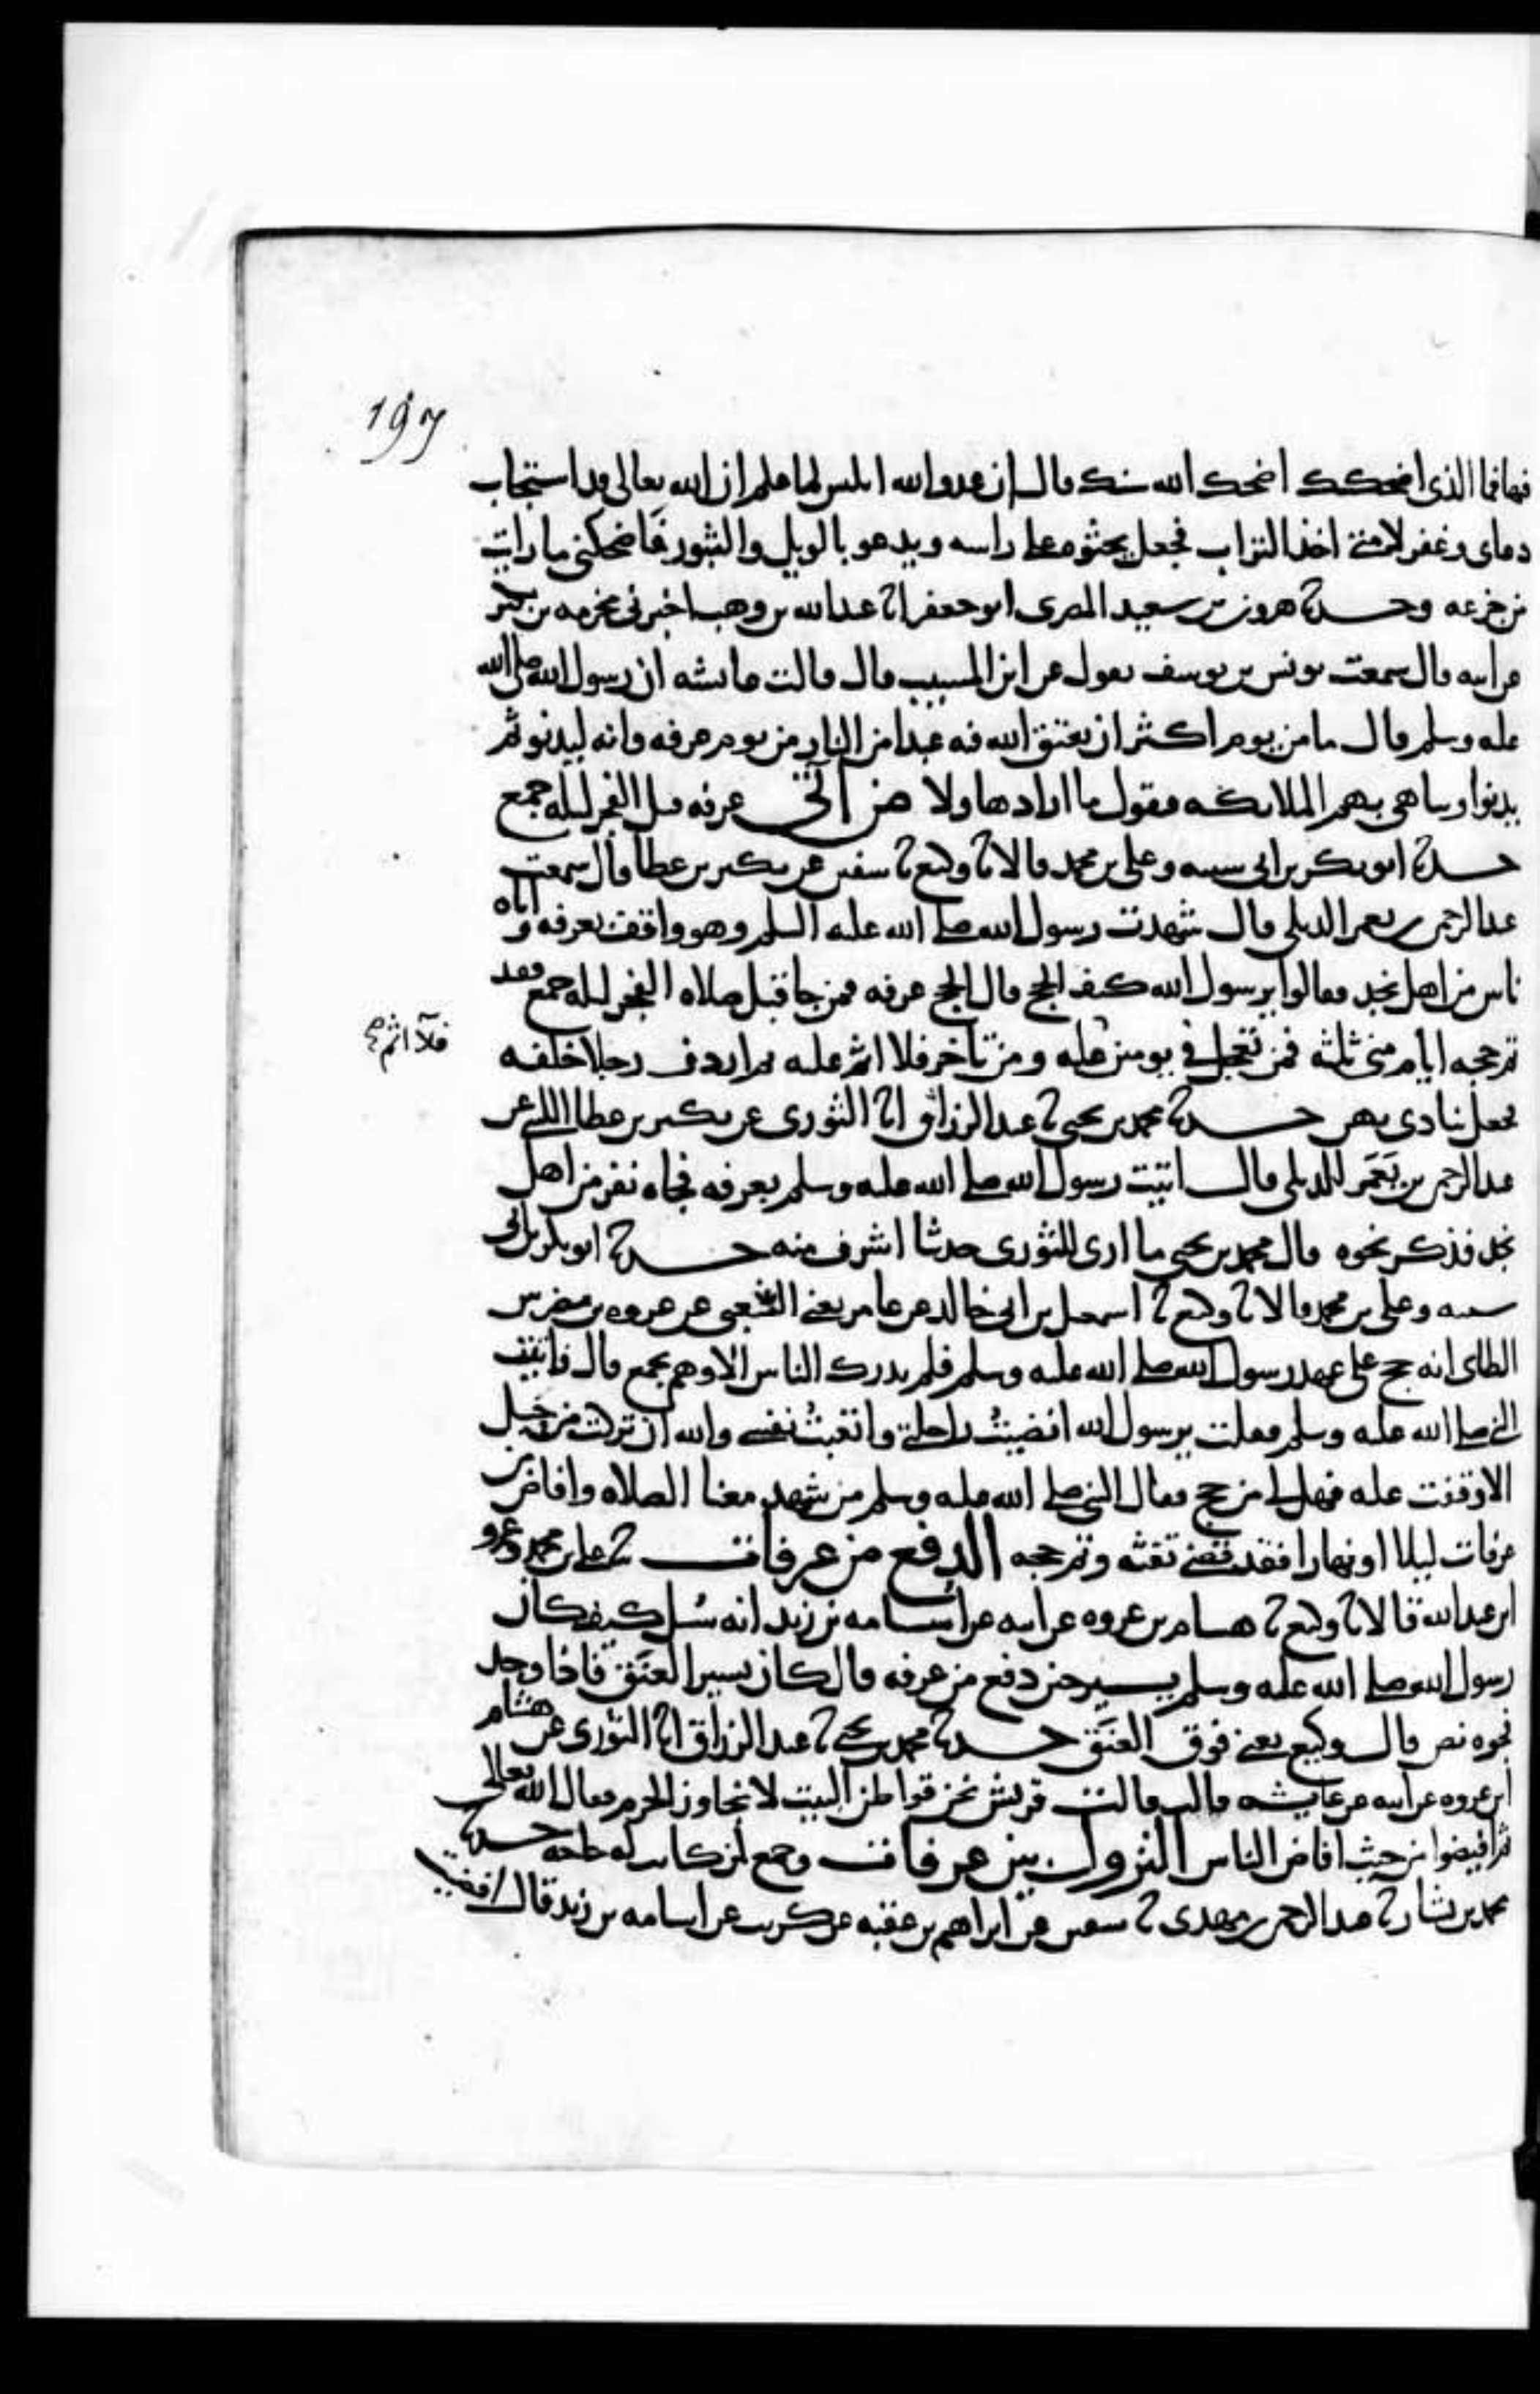 197
فيها فما الذى اضحكك اضحك الله سنك قال ان عدو الله ابليس لما علم ان الله تعالى قد استجاب
دعاى وغفر لامتى اخذ التراب فجعل يحثوه على راسه ويدعو بالويل والثبور فاضحكنى ما رايت
من جزعه وحدثنا هرون بن سعيد المصرى ابو جعفر انا عبد الله بن وهب اخبرنى مخرمه بن بكير
عن ابيه قال سمعت يونس بن يوسف يقول عن ابن المسيب قال قالت عائشه ان رسول الله صلى الله
عليه وسلم قال ما من يوم اكثر ان يعتق الله فيه عبدا من النار من يوم عرفه وانه ليدنو ثم
يدنوا ويباهى بهم الملائكه فيقول ما اراد هاولا من اتى عرفه قبل الفجر ليله جمع
حدثنا ابو بكر بن ابى شيبه وعلى بن محمد قالا ثنا وكيع ثنا سفين عن بكير بن عطا قال سمعت
عبد الرحمن بن يعمر الديلى قال شهدت رسول الله صلى الله عليه السلم وهو واقف بعرفه واتاه
ناس من اهل نجد فقالوا يرسول الله كيف الحج قال الحج عرفه فمن جا قبل صلاه الفجر ليله جمع فقد
تم حجه ايام منى ثلثه فمن تعجل فى يومين عليه ومن تاخر فلا اثم عليه ثم اردف رجلا خلفه
فلا اثم صح
فجعل ينادى بهن حدثنا محمد بن يحيى ثنا عبد الرزاق انا الثورى عن بكير بن عطا الليثى عن
عبد الرحمن بن يَعمَر الديلى قال اتيت رسول الله صلى الله عليه وسلم بعرفه فجاه نفر من اهل
نجد فذكر نحوه قال محمد بن يحيى ما ارى للثورى حديثا اشرف منه حدثنا ابو بكر بن ابى
شيبه وعلى بن محمد قالا ثنا وكيع ثنا اسمعيل بن ابى خالد عن عامر يعنى الشعبى عن عروه بن مضرس
الطاى انه حج على عهد رسول الله صلى الله عليه وسلم فلم يدرك الناس الا وهم بجمع قال فاتيت
النبى صلى الله عليه وسلم فقلت يرسول الله انضيتُ راحلتى واتعبتُ نفسى والله ان تركت من جبل
الا وقفت عليه فهل لى من حج فقال النبى صلى الله عليه وسلم من شهد معنا الصلاه وافاض من
عرفات ليلا او نهارا فقد قضى تفثه وتم حجه الدفع من عرفات ثنا على بن محمد وعمرو
ابن عبد الله قالا ثنا وكيع ثنا هشام بن عروه عن ابيه عن اسامه بن زيد انه سُئل كيف كان
رسول الله صلى الله عليه وسلم يسير حين دفع من عرفه قال كان يسير العَنَق فاذا وجد
فجوه نص قال وكيع يعنى فوق العَنَق حدثنا محمد بن يحيى ثنا عبد الرزاق انا الثورى عن هشام
ابن عروه عن ابيه عن عايشه قالت قالت قريش نحن قواطن البيت لا نجاوز الحرم فقال الله تعالى
ثم افيضوا من حيث افاض الناس النزول بين عرفات وجمع لمن كانت له حاجه حدثنا
محمد بن بشار ثنا عبد الرحمن بن مهدى ثنا سفين عن ابراهيم بن عقبه عن كريب عن اسامه بن زيد قال افضت